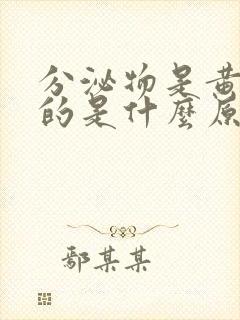 分泌物是黄
的是什麼原
鄢某某